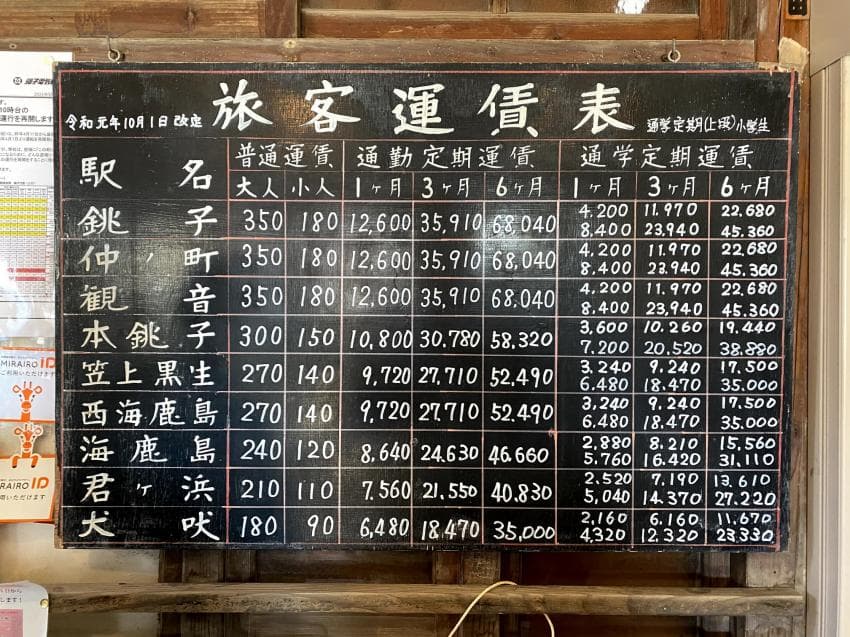 令和元年10月1日改定 旅客運賃表 通学定期(上段)小学生
駅名 普通運賃 通勤定期運賃 通学定期運賃
大人 小人 1ヶ月 3ヶ月 6ヶ月 1ヶ月 3ヶ月 6ヶ月
銚子 350 180 12,600 35,910 68,040 4,200 11.970 22,680
8.400 23,940 45.360
仲ノ町 350 180 12,600 35,910 68,040 4,200 11.970 22,680
8.400 23.940 45.360
観音 350 180 12,600 35,910 68.040 4.200 11.970 22,680
8.400 23,940 45.360
本銚子 300 150 10,800 30.780 58,320 3,600 10.260 19.440
7,200 20,520 38,880
笠上黒生 270 140 9,720 27,710 52,490 3,240 9.240 17,500
6.480 18,470 35,000
西海鹿島 270 140 9,720 27,710 52,490 3,240 9,240 17,500
6,480 18,470 35,000
海鹿島 240 120 8,640 24,630 46,660 2,880 8,210 15,560
5.760 16,420 31,110
君ヶ浜 210 110 7,560 21,550 40,830 2,520 7,190 13,610
5,040 14,370 27,220
犬吠 180 90 6,480 18,470 35,000 2,160 6.160 11,670
4,320 12,320 23,330
MIRAIRO ID
ご利用いただけます
MIRAIRO ID